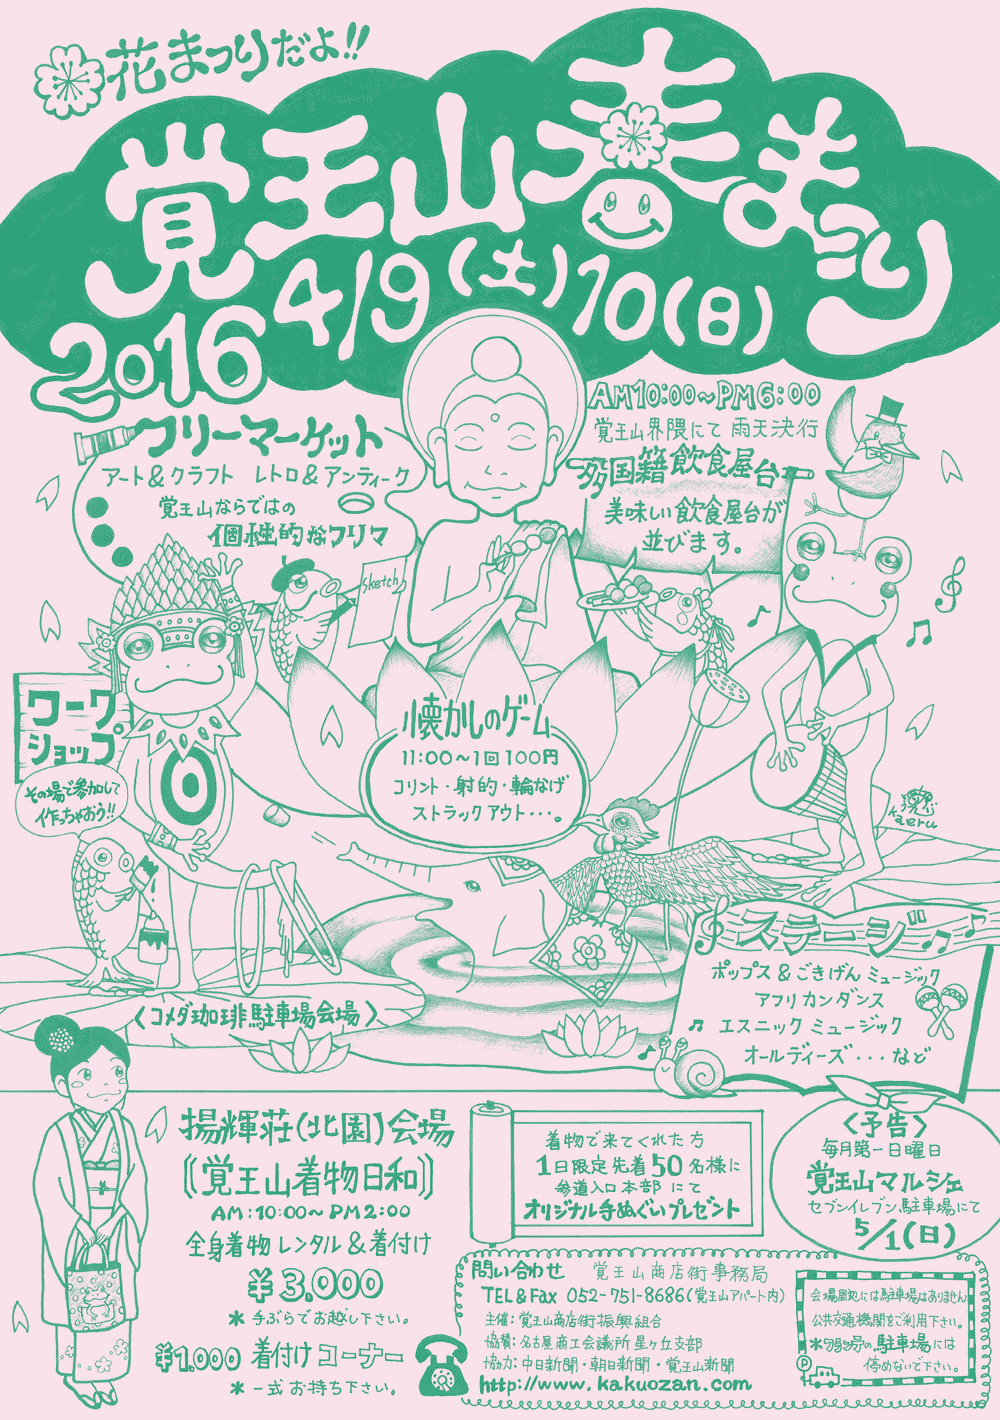 花まつりだよ!!
覚王山春まつり
2016 4/9(土)10(日)
AM10:00~PM6:00
覚王山界隈にて 雨天決行
フリーマーケット
アート&クラフト レトロ&アンティーク
覚王山ならではの
個性的なフリマ
多国籍飲食屋台
美味しい飲食屋台が
並びます。
sketch
ワーク
ショップ
その場で参加して
作っちゃおう!!
懐かしのゲーム
11:00~1回100円
コリント・射的・輪なげ
ストラックアウト・・・。
kaeru
ステージ
ポップス&ごきげんミュージック
アフリカンダンス
エスニックミュージック
オールディーズ・・・など
〈コメダ珈琲駐車場会場〉
揚輝荘(北園)会場
《覚王山着物日和》
AM:10:00~PM2:00
全身着物レンタル&着付け
¥3,000
*手ぶらでお越し下さい。
¥1,000 着付けコーナー
*一式お持ち下さい。
着物で来てくれた方
1日限定先着50名様に
参道入口本部にて
オリジナル手ぬぐいプレゼント
〈予告〉
毎月第一日曜日
覚王山マルシェ
セブンイレブン駐車場にて
5/1(日)
問い合わせ 覚王山商店街事務局
TEL&Fax 052-751-8686(覚王山アパート内)
主催:覚王山商店街振興組合
協賛:名古屋商工会議所星ヶ丘支部
協力:中日新聞・朝日新聞・覚王山新聞
http://www.kakuozan.com
会場周辺には駐車場はありません
公共交通機関をご利用下さい。
*タダタダの駐車場には
停めないで下さい。
P